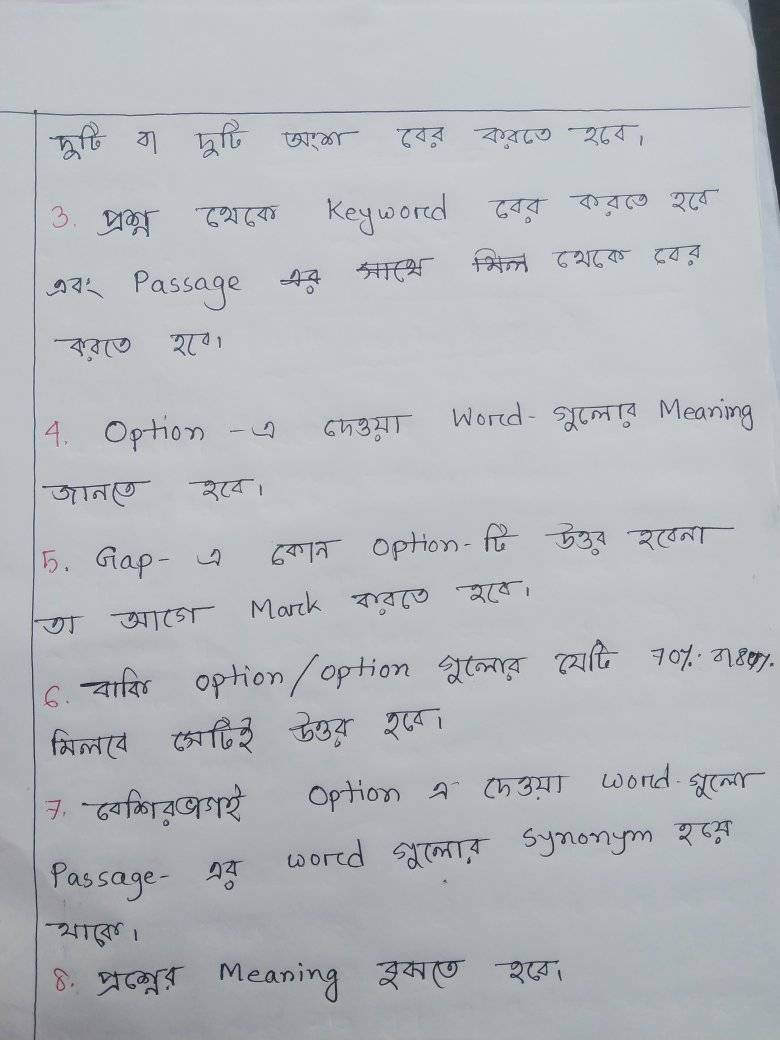 দুটি বা দুটি অংশ বের করতে হবে।
3. প্রশ্ন থেকে Keyword বের করতে হবে
এবং Passage এর সাথে মিল থেকে বের
করতে হবে।
4. Option - এ দেওয়া Word- গুলোর Meaning
জানতে হবে।
5. Gap- এ কোন option- টি উত্তর হবেনা
তা আগে Mark করতে হবে।
6. বাকি option/option গুলোর যেটি 70% বা 80%
মিলবে সেটিই উত্তর হবে।
7. বেশিরভাগই Option এ দেওয়া word-গুলো
Passage- এর word গুলোর synonym হয়ে
থাকে।
8. প্রশ্নের Meaning বুঝতে হবে।